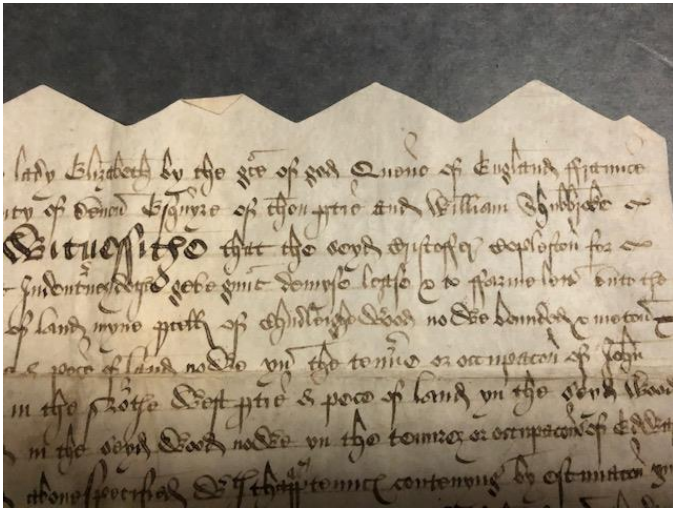 lady Elizabeth by the gce of god Quene of England ffraunce
nty of Devon Esquyre of thon ptie and William
Witnessithe that the seyd Cristoffer Copleston for
Indenture dothe gve gnt demyse lease & to fferme lett vnto the
of land nyne pcell of Chudleighe Wood nowe bounded & meton
pece of land nowe yn the tenure or occupacon of John
in the Northe West ptie & pece of land yn the seyd Wood
in the seyd Wood nowe yn the tenure or occupacon of Edwa
above specified Wth thapptennc contenyng by estimacon